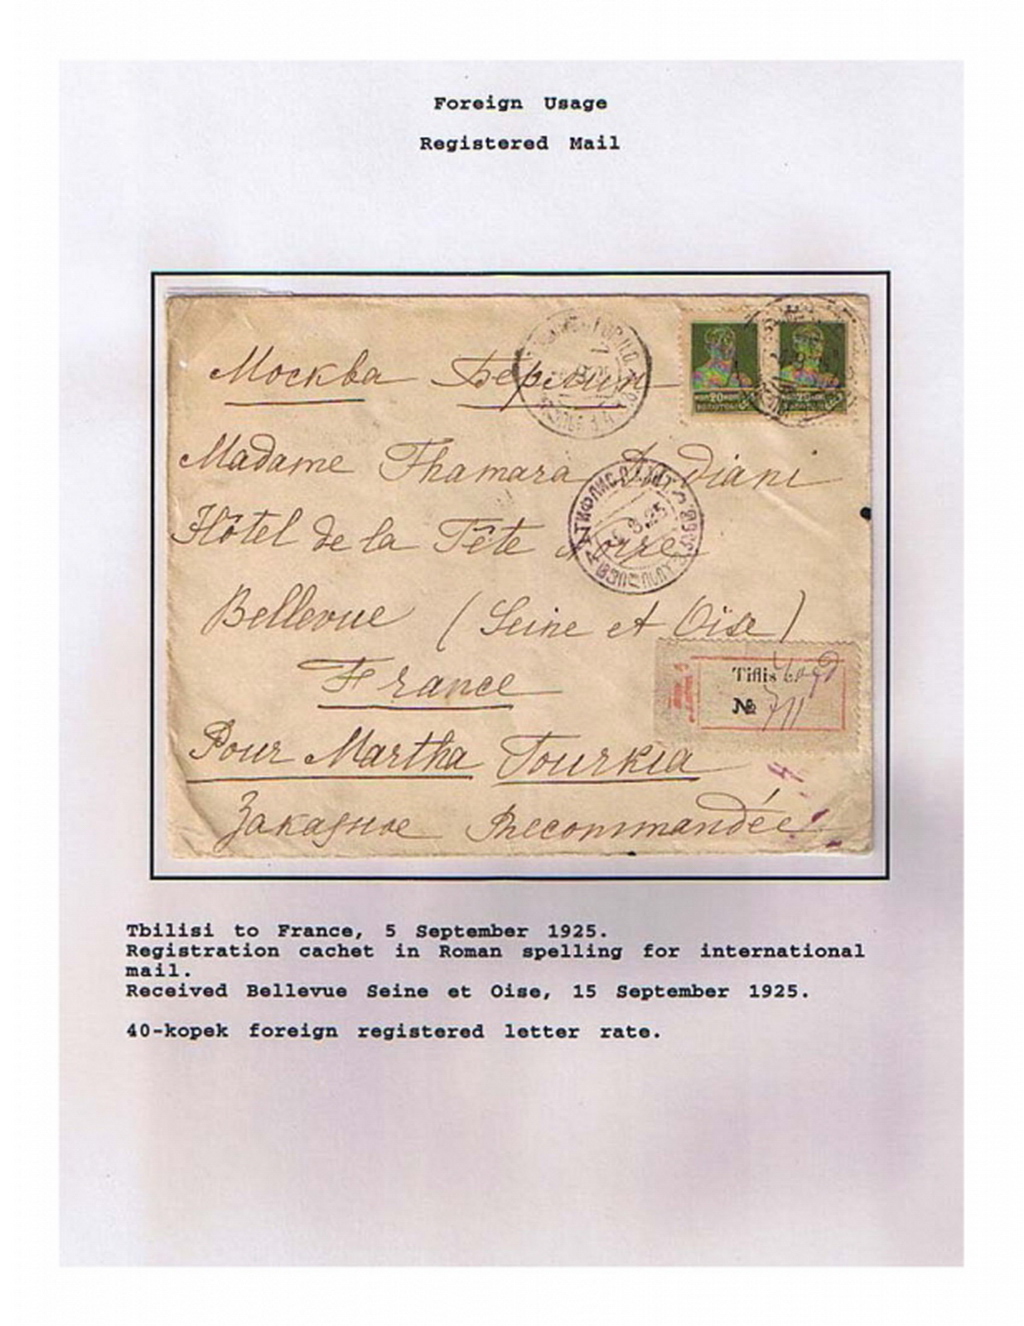 Foreign Usage
Registered Mail
Москва Берлин
Madame Thamara Dediani
Hôtel de la Tête Noire
Bellevue (Seine et Oise)
France
Tiflis
№ 711
Pour Martha Tourkia
Заказное Recommandée
Tbilisi to France, 5 September 1925.
Registration cachet in Roman spelling for international
mail.
Received Bellevue Seine et Oise, 15 September 1925.
40-kopek foreign registered letter rate.